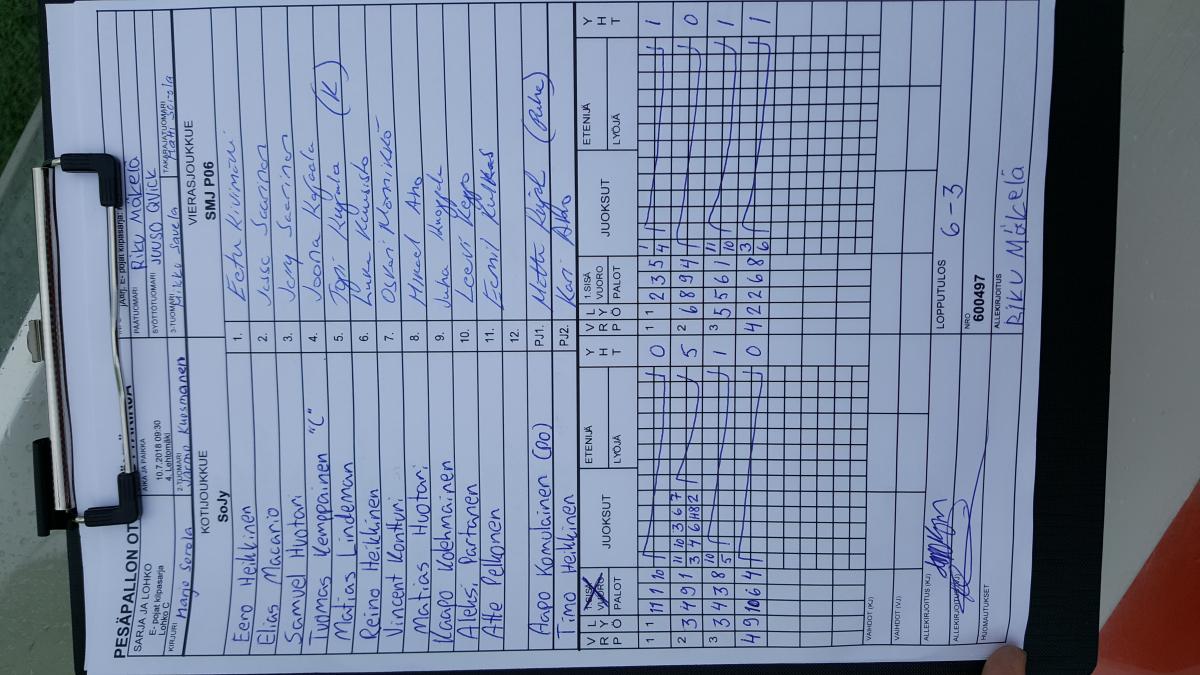 PESÄPALLON OT
SARJA JA LOHKO
E- pojat kilpasarja
Lohko C
AIKA JA PAIKKA
10.7.2018 09:30
4. Lehtomäki
JÄRJ. E- pojat kilpasarja
PÄÄTUOMARI Riku Mäkelä
SYÖTTÖTUOMARI JUUSO QVICK
KIRJURI Marjo Sorola
2-TUOMARI Jarmo Kurosmanen
3-TUOMARI Mikko Savela
TAKARAJATUOMARI Matti Sorola
KOTIJOUKKUE VIERASJOUKKUE
SoJy SMJ P06
Eero Heikkinen 1. Eetu Kivimäki
Elias Macario 2. Jesse Saarinen
Samuel Huotari 3. Jerry Saarinen
Tuomas Kemppainen "C" 4. Joona
Matias Lindeman 5. (K)
Reino Heikkinen 6. Luka
Vincent Kontturi 7. Oskari
Matias Huotari 8. Mikael Aho
Kaapo Kolehmainen 9. Juha
Aleksi Partanen 10. Leevi
Atte Pelkonen 11. Eemil
12.
Aapo Komulainen (PO) PJ1. Matti
Timo Heikkinen PJ2. Kari Aho
V R L Y P Ö 1.SISÄ VUORO PALOT JUOKSUT ETENIJÄ LYÖJÄ Y H T V R L Y P Ö 1.SISÄ VUORO PALOT JUOKSUT ETENIJÄ LYÖJÄ Y H T
1 1 11 1 10 0 1 1 2 3 5 4 1
2 3 4 9 1 11 10 3 6 7 3 4 6 11 8 2 5 2 6 8 9 4 0
3 3 4 3 8 10 5 1 3 5 5 6 1 11 10 1
4 9 10 6 4 0 4 2 2 6 8 3 6 1
VAIHDOT (KJ)
VAIHDOT (VJ)
ALLEKIRJOITUS (KJ)
ALLEKIRJOITUS (VJ)
HUOMAUTUKSET
LOPPUTULOS 6-3
NRO
600497
ALLEKIRJOITUS
Riku Mäkelä